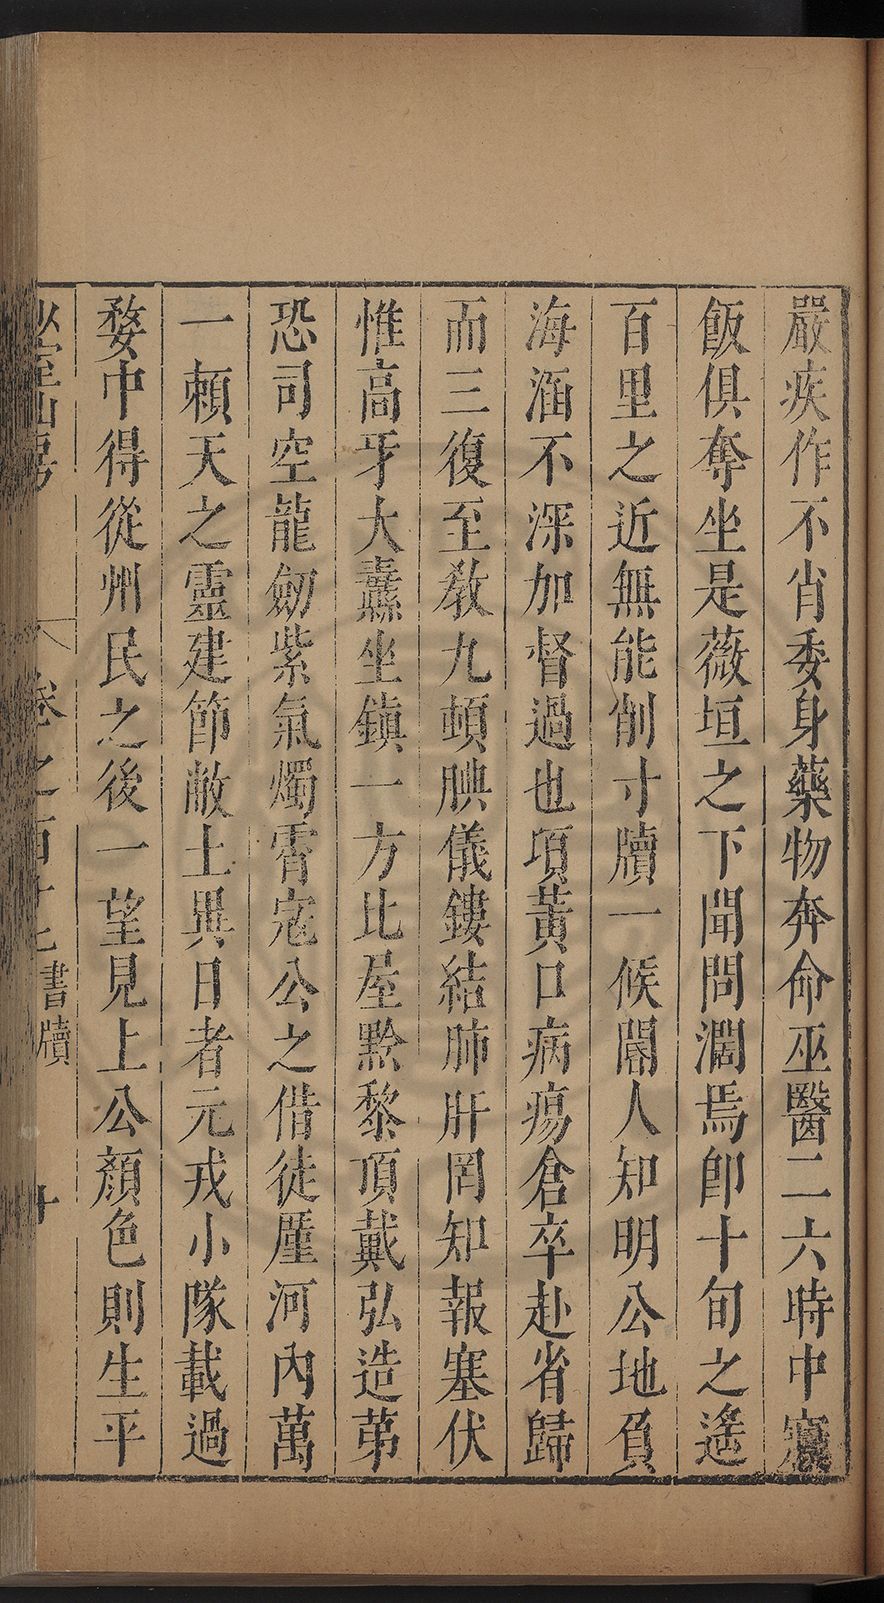 嚴疾作不肖委身藥物奔命巫醫二六時中寤
飯俱奪坐是薇垣之下聞問濶焉即十旬之遙
百里之近無能削寸牘一候閽人知明公地負
海涵不深加督過也項黃口病瘍倉卒赴省歸
而三復至教九頓腆儀鏤結肺肝罔知報塞伏
惟高牙大纛坐鎮一方比屋黔黎頂戴弘造苐
恐司空龍劒紫氣燭霄寇公之借徒厪河內萬
一賴天之靈建節敝土異日者元戎小隊載過
婺中得從州民之後一望見上公顏色則生平
卷之百十七 書牘 十